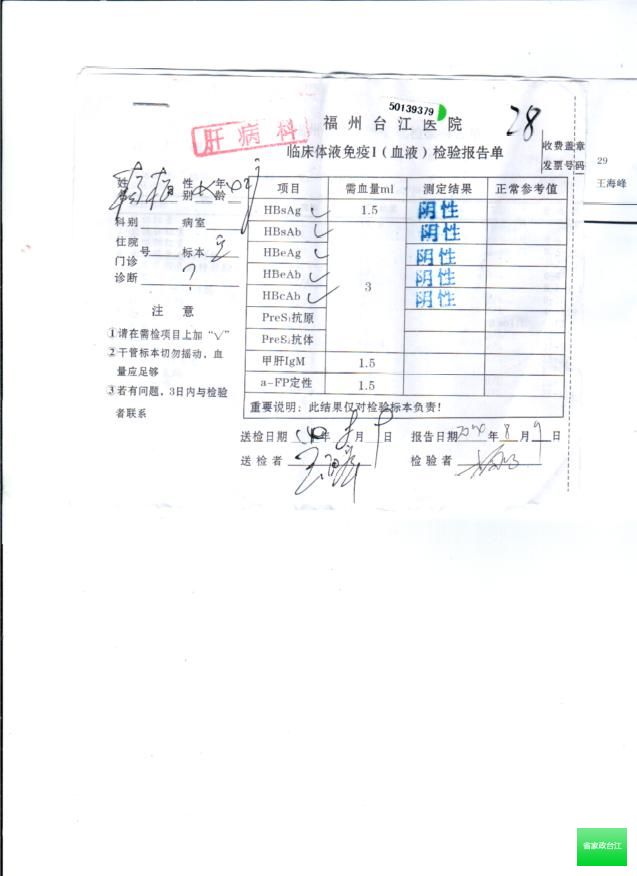 50139379
28
肝病科
福州台江医院
临床体液免疫I（血液）检验报告单
收费盖章
发票号码
29
王海峰
姓名 性别 女 年龄
科别 病室
住院
门诊 号 标本
诊断
注 意
①请在需检项目上加“√”
②干管标本切勿摇动，血
量应足够
③若有问题，3日内与检验
者联系
项目 需血量ml 测定结果 正常参考值
HBsAg ✓ 1.5 阴性
HBsAb ✓ 阴性
HBeAg ✓ 阴性
HBeAb ✓ 3 阴性
HBcAb ✓ 阴性
PreS₁抗原
PreS₁抗体
甲肝IgM 1.5
a-FP定性 1.5
重要说明：此结果仅对检验标本负责！
送检日期 年 月 日 报告日期 年 8 月 9 日
送检者 检验者
省家政台江